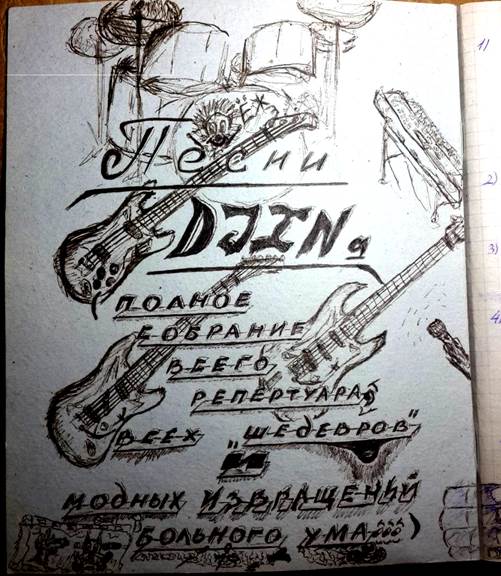 ЁЖ
Песни
DJINа
ПОЛНОЕ
СОБРАНИЕ
ВСЕГО
РЕПЕРТУАРА,
ВСЕХ "ШЕДЕВРОВ"
И
МОДНЫХ ИЗВРАЩЕНИЙ
БОЛЬНОГО УМА...)
1)
2)
3)
4)